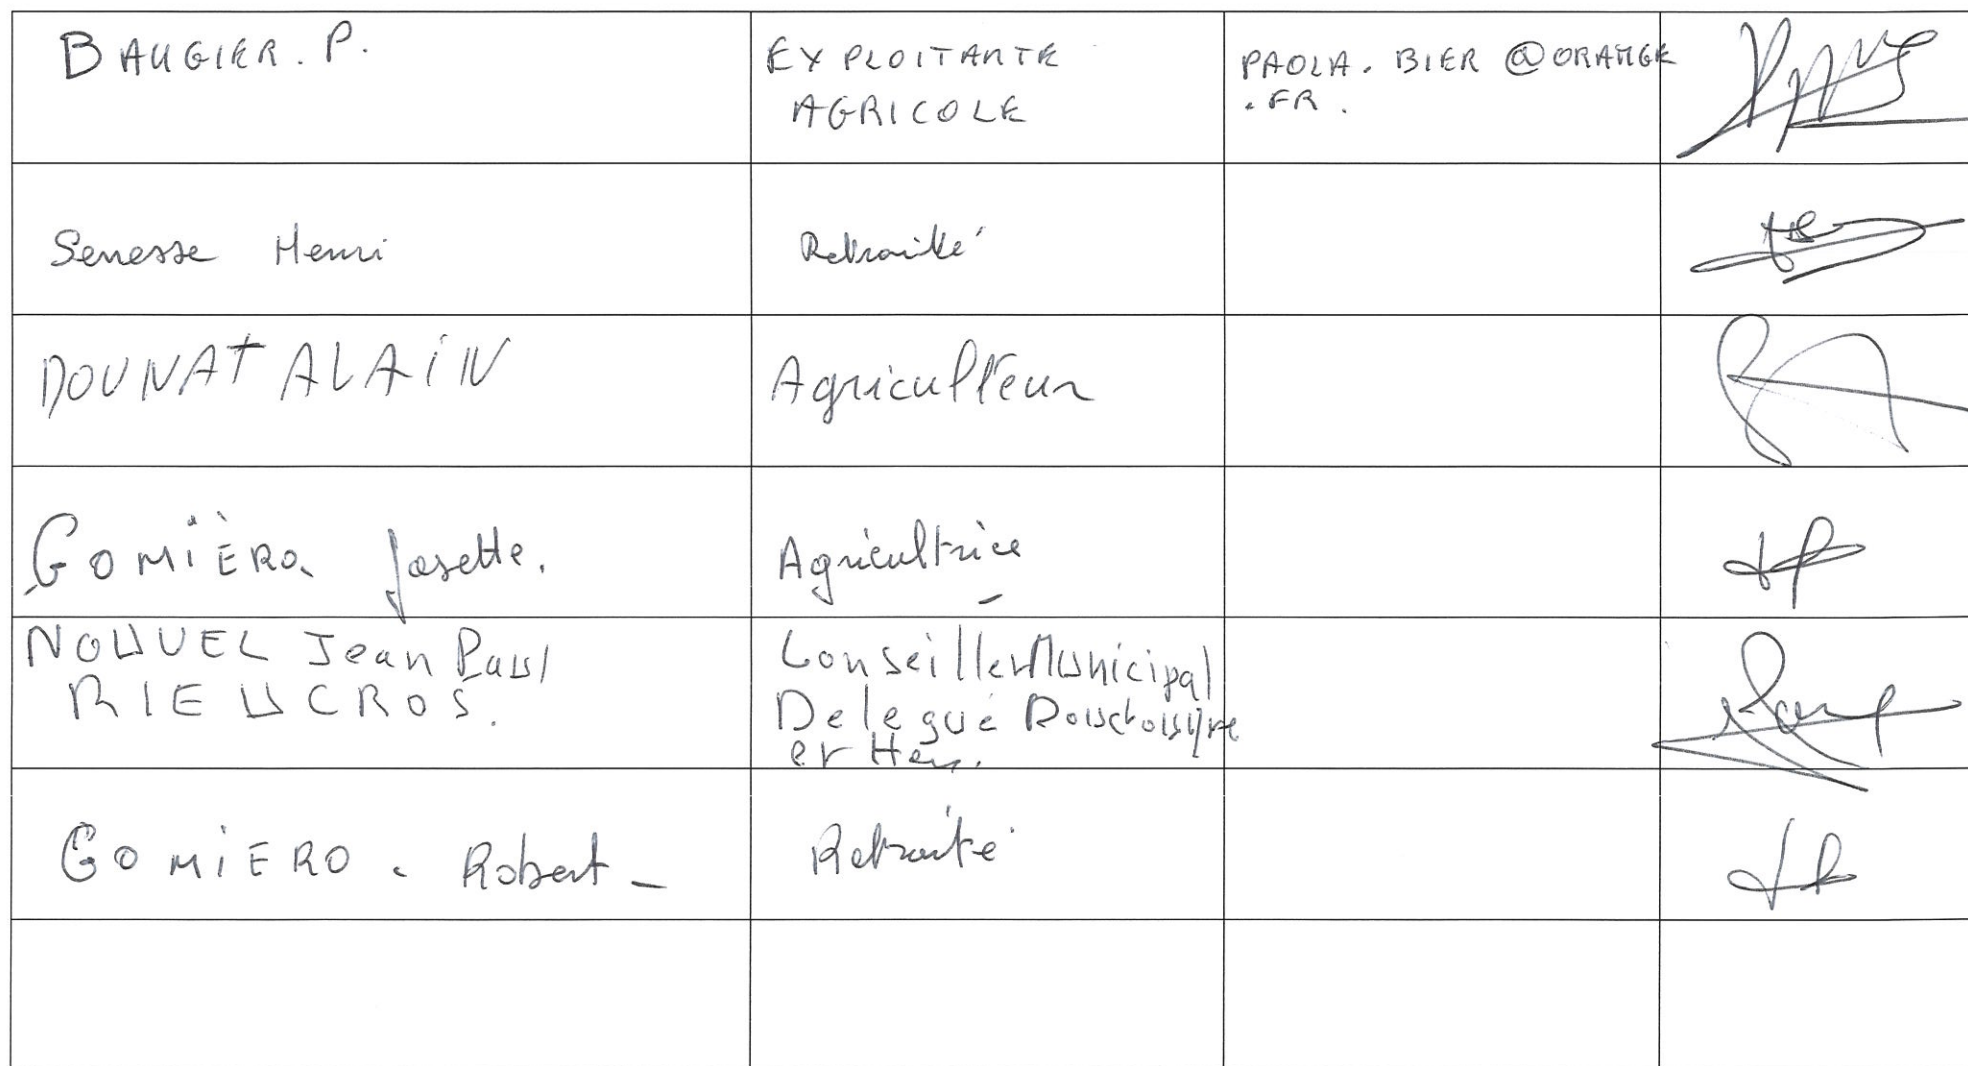 BAUGIER. P.
EXPLOITANTE
AGRICOLE
PAOLA. BIER @ORANGE
.FR.
Senesse Henri
Retraité
DOUNAT ALAIN
Agriculteur
GOMIÈRO Josette.
Agricultrice
NOUVEL Jean Paul
RIEUCROS.
Conseiller Municipal
Delegué
et
GOMIERO. Robert -
Retraité